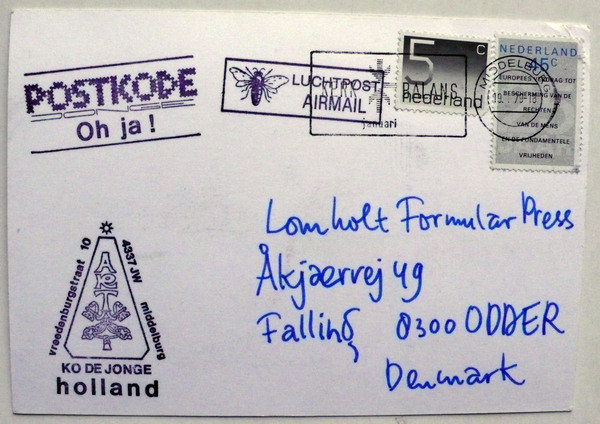 POSTKODE
Oh ja!
LUCHTPOST
AIRMAIL
BALANS
januari
5 c
nederland
NEDERLAND
45c
EUROPEES VERDRAG TOT
BESCHERMING VAN DE
RECHTEN
VAN DE MENS
EN DE FUNDAMENTELE
VRIJHEDEN
MIDDELBURG
Lomholt Formular Press
Åkjærvej 49
Falling
8300 ODDER
Denmark
ART
vreedenburgstraat 10
4337 JW middelburg
KO DE JONGE
holland